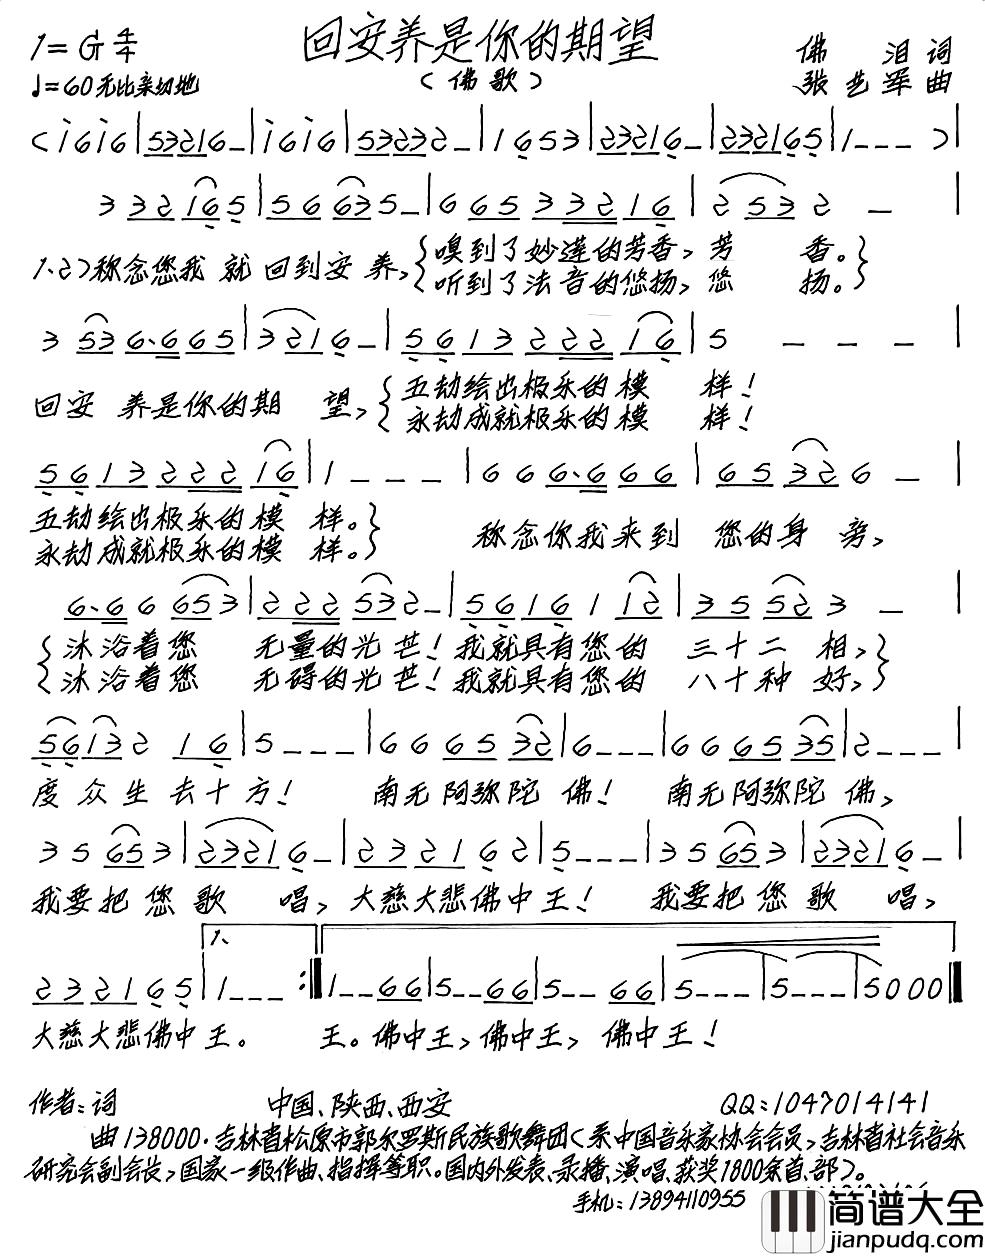 回安养是你的期望
1=G 4/4
(佛歌)
佛 泪 词
♩=60无比亲切地
张艺军 曲
(i6i6|53216-|i6i6|53232-|1653|23216-|232165|1---)|
332165|56635-|665332216|2532-|
1.2)称念您我就回到安养,{嗅到了妙莲的芳香,芳香。}
{听到了法音的悠扬,悠扬。}
3536.665|33216-|561322216|5---|
回安养是你的期望,{五劫绘出极乐的模样!
{永劫成就极乐的模样!
561322216|1---|666.666|65326-|
五劫绘出极乐的模样。} 称念你我来到您的身旁,
永劫成就极乐的模样。}
6.66653|222532-|5616112|35523-|
{沐浴着您 无量的光芒!我就具有您的 三十二相,}
{沐浴着您 无碍的光芒!我就具有您的 八十种好,}
5613216|5---|666532|6---|666535|2---|
度众生去十方! 南无阿弥陀佛! 南无阿弥陀佛,
35653|23216-|232162|5---|35653|23216-|
我要把您歌唱,大慈大悲佛中王! 我要把您歌唱,
1.
232165|1---:‖1--66|5--66|5--66|5---|5---|5000‖
大慈大悲佛中王。 王。佛中王,佛中王,佛中王!
作者:词 中国、陕西、西安 QQ:1047014141
曲138000.吉林省松原市郭尔罗斯民族歌舞团(系中国音乐家协会会员,吉林省社会音乐
研究会副会长,国家一级作曲、指挥等职。国内外发表、录播、演唱、获奖1800余首、部)。
手机:13894110955
简谱大全
jianpudq.com